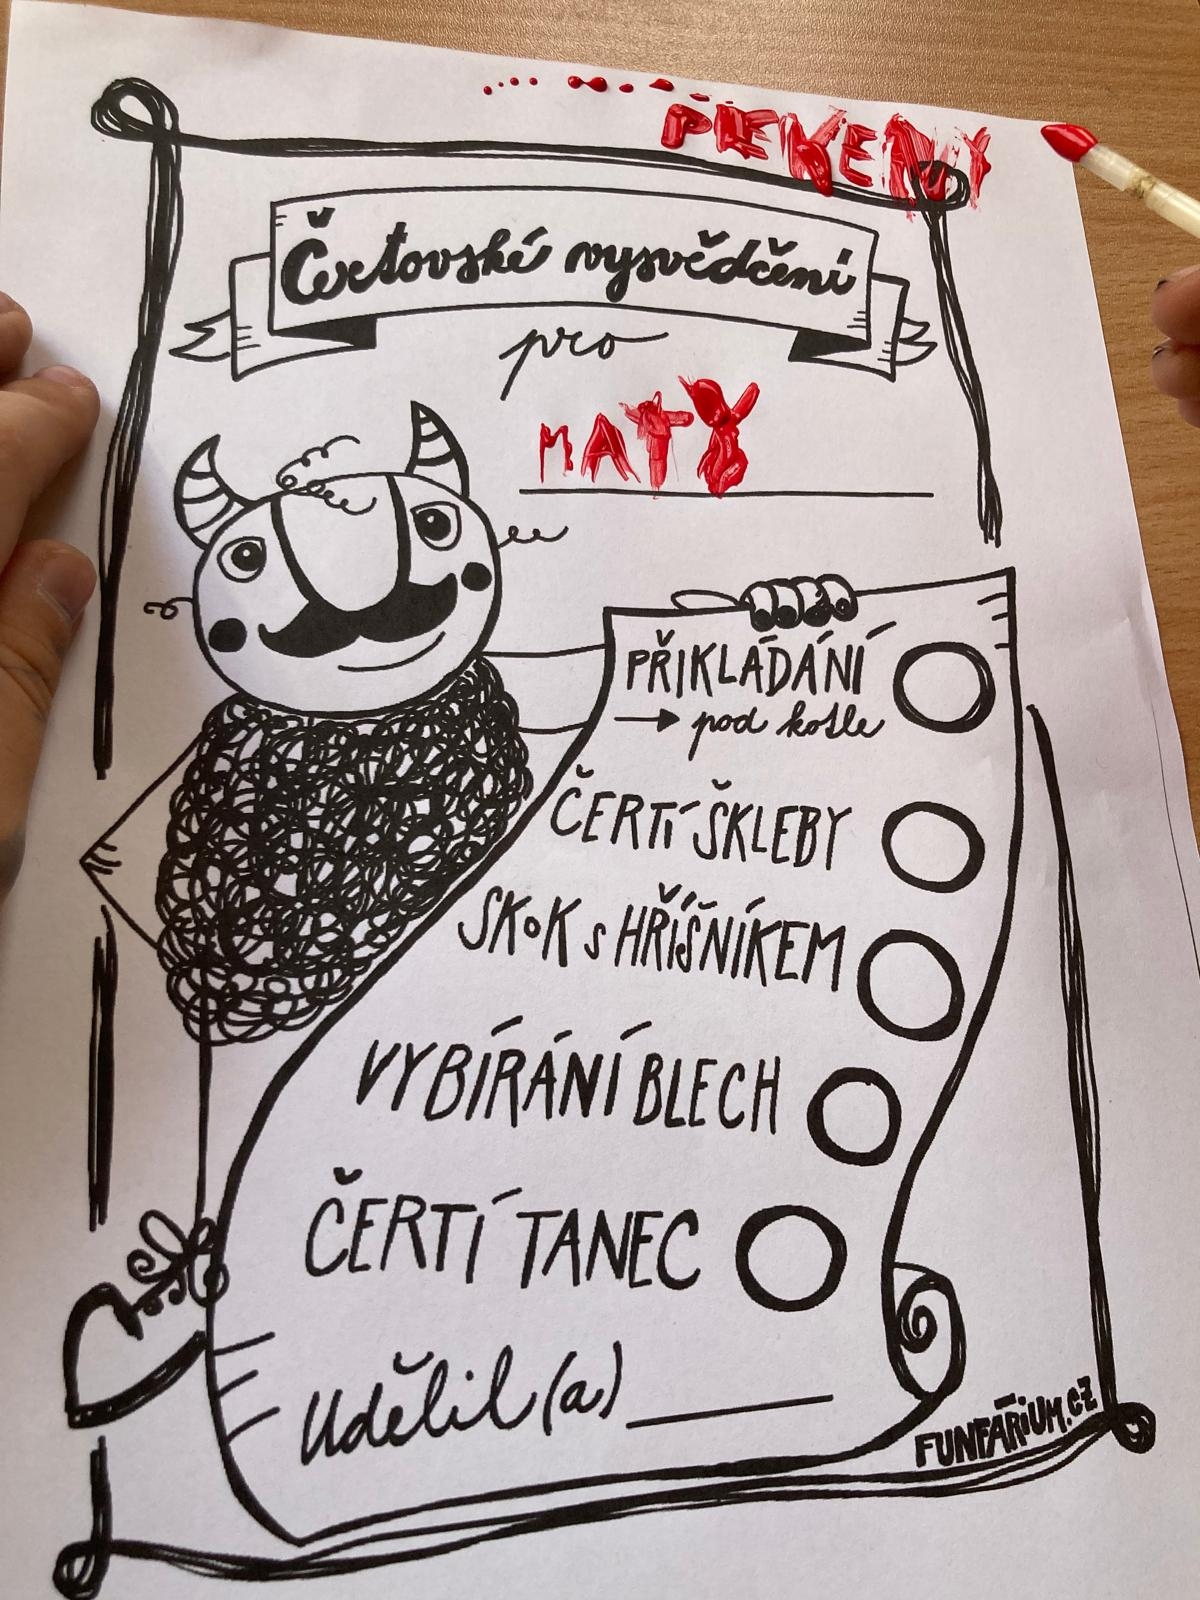 Čertovské vysvědčení
pro
MATY
PŘIKLÁDÁNÍ
→ pod kotle
ČERTÍ ŠKLEBY
SKOK s HŘÍŠNÍKEM
VYBÍRÁNÍ BLECH
ČERTÍ TANEC
Udělil(a)
FUNFÁRIUM.cz